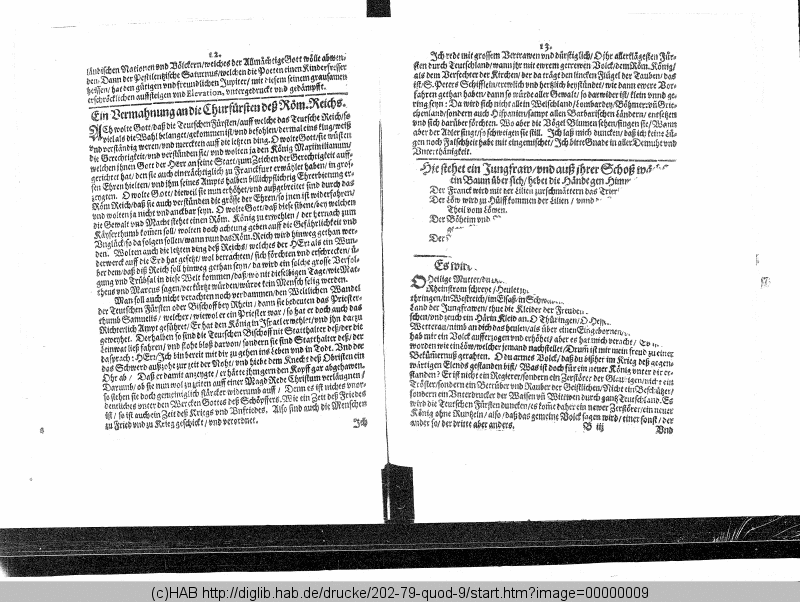 12.
ländischen Nationen vnd Völckern/welches der Allmächtige Gott wölle abwen-
den. Dann der Pestilentzische Saturnus/welchen die Poeten einen Kinderfresser
heissen/hat den gütigen vnd freundlichen Jupiter/mit diesem seinem grausamen
erschröcklichen auffsteigen vnd Elevation, vntergedruckt vnd gedämpfft.
Ein Vermahnung an die Churfürsten deß Röm. Reichs.
ACh wolte Gott/daß die Teutschen Fürsten/auff welche das Teutsche Reich/so
viel als die Wahl belanget/gekommen ist/vnd befohlen/dermal eins klug/weiß
vnd verständig weren/vnd merckten auff die letzten ding. O wolte Gott/sie wüsten
die Gerechtigkeit/vnd verstünden sie/vnd wolten ja den König Maximilianum/
welchen ihnen Gott der HErr an seine Statt/zum Zeichen der Gerechtigkeit auff-
gerichtet hat/den sie auch einträchtiglich zu Franckfurt erwählet haben/in gros-
sen Ehren hielten/vnd ihm seines Ampts halben billich pflichtig Ehrerbietung er-
zeygten. O wolte Gott/dieweil sie nun erhöhet/vnd außgebreitet sind durch das
Röm Reich/daß sie auch verstünden die grösse der Ehren/so jnen ist widerfahren/
vnd wolten ja nicht vndanckbar seyn. O wolte Gott/daß diese sieben/bey welchen
die Gewalt vnd Macht stehet einen Röm. König zu erwehlen/ der hernach zum
Käyserthumb kom̃en soll/wolten doch achtung geben auff die Gefährlichkeit vnd
Vnglück/so da folgen sollen/wann nun das Röm. Reich wird hinweg gethan wer-
den. Wolten auch die letzten ding deß Reichs/ welches der HErr als ein Wun-
derwerck auff die Erd hat gesetzt/wol betrachten/sich förchten vnd erschrecken/ü-
ber dem/daß diß Reich soll hinweg gethan seyn/da wird ein solche grosse Verfol-
gung vnd Trübsal in diese Welt kommen/daß/wo nit dieselbigen Tage/wie Mat-
theus vnd Marcus sagen/verkürtzt würden/würde kein Mensch selig werden.
Man soll auch nit verachten noch verdammen/den Weltlichen Wandel
der Teutschen Fürsten oder Bischoff bey Rhein/dann sie bedeuten das Priester-
thumb Samuelis/ welcher/wiewol er ein Priester war/so hat er doch auch das
Richterlich Ampt geführet/Er hat den König in Israel erwehlet/vnd jhn dazu
geweyhet. Derhalben so sind die Teutschen Bischoff nit Statthalter deß/der die
Leinwat ließ fahren/vnd flohe bloß darvon/sondern sie sind Statthalter deß/der
da sprach: HErr/Ich bin bereit mit dir zu gehen ins Leben vnd in Todt. Vnd der
das Schwerd außzoht zur zeit der Noht/vnd hiebe dem Knecht deß Obristen ein
Ohr ab/ Daß er damit anzeygte/er hätte jhm gern den Kopff gar abgehawen.
Darumb/ob sie nun wol zu zeiten auff einer Magd Rede Christum verläugnen/
so stehen sie doch gemeiniglich stärcker widerumb auff/ Denn es ist nichts vnor-
denliches vnter den Wercken Gottes deß Schöpffers. Wie ein Zeit deß Friedes
ist/so ist auch ein Zeit deß Kriegs vnd Vnfriedes. Also sind auch die Menschen
zu Fried vnd zu Krieg geschickt/vnd verordnet.
Ich
13.
Ich rede mit grossem Vertrawen vnd dürstiglich/O jhr allerklügesten Für-
sten durch Teutschland/wann jhr mit ewrem getrewen Volck/dem Röm. König/
als dem Verfechter der Kirchen/der da trägt den lincken Flügel der Tauben/das
ist/S. Peters Schifflein/trewlich vnd hertzlich beystündet/wie dann ewere Vor-
fahren gethan haben/dann so würde aller Gewalt/so darwider ist/klein vnnd ge-
ring seyn: Da wird sich nicht allein Welschland/Lombardey/Böhmen vñ Grie-
chenland/sondern auch Hispanien/sampt allen Barbarischen Ländern/entsetzen
vnd sich darüber förchten. Wo aber die Vögel Blumen sehen/singen sie/Wann
aber der Adler singt/so schweigen sie still. Ich laß mich duncken/daß ich keine Lü-
gen noch Falschheit habe mit eingemischet/Ich bitte Gnade in aller Demuht vnd
Vnterthänigkeit.
Hie stehet ein Jungfraw/vnd auß jhrer Schoß
ein Baum über sich/hebet die Händ gen
Der Franck wird mit der Lilien zurschmättern das
Der Löw wird zu Hülff kommen der Lilien/
Theil vom Löwen.
Der Böheim vnd
Der
Es wird
O Heilige Mutter
Rheinstrom schreye/Heulet
thringen/in Westreich/im Elsaß/in
Land der Jungfrawen/thue die Kleider der Freuden
schen/vnd zeuch ein Härin Kleid an. O Thüringen/O
Wetteraw/nimb an dich das heulen/als über einen Eingebornen
hab mir ein Volck aufferzogen vnd erhöhet/aber es hat mich veracht/
worden wie ein Löw/welcher jemand nachstellet/Drum̃ ist mir mein freud zu einer
Bekümernuß gerahten. O du armes Volck/daß du bißher im Krieg deß gegen-
wärtigen Elends gestanden bist/ Was ist doch für ein newer König vnter dir er-
standen? Er ist nicht ein Regierer/sondern ein Zerstörer der Glaubigen/nicht ein
Tröster/sondern ein Betrüber vnd Rauber der Geistlichen/Nicht ein Beschützer/
sondern ein Vnterdrucker der Waisen vñ Wittwen durch gantz Teutschland. Es
wird die Teutschen Fürsten duncken/es kom̃e daher ein newer Zerstörer/ein newer
König ohne Runtzeln/also/daß das gemeine Volck sagen wird/einer sonst/der
ander so/der dritte aber anders.
B iij
Vnd
(c)HAB http://diglib.hab.de/drucke/202-79-quod-9/start.htm?image=00000009